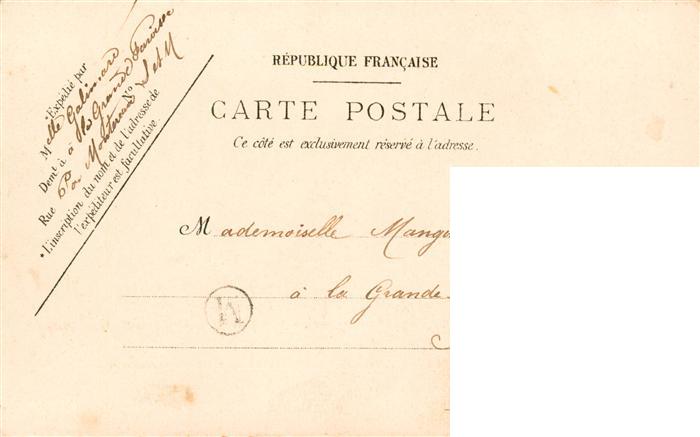 *Expédié par
Melle Galimard
Demt à à la Grande Paroisse
Rue par Montereau N° S et M
*L'inscription du nom et de l'adresse de
l'expéditeur est facultative.
RÉPUBLIQUE FRANÇAISE
CARTE POSTALE
Ce côté est exclusivement réservé à l'adresse.
Mademoiselle
à la Grande
M